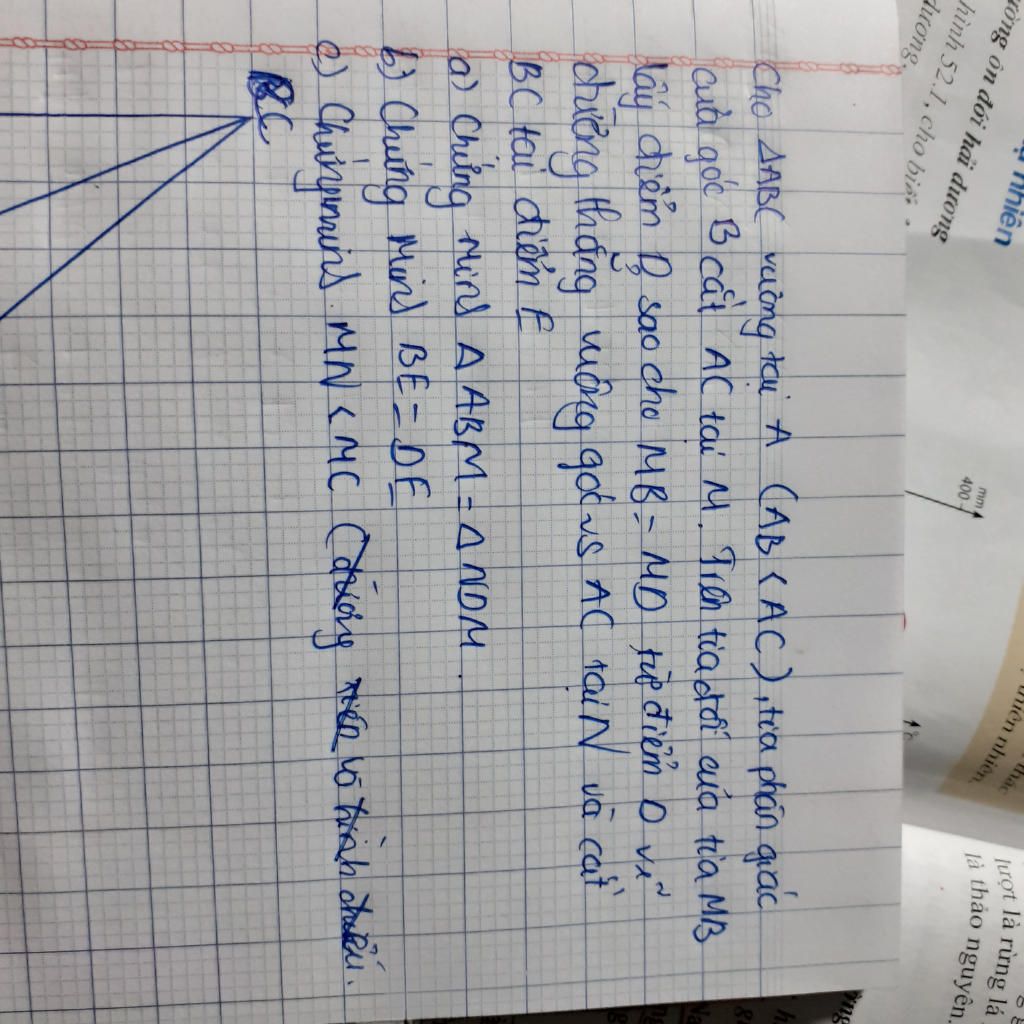 Cho ΔABC vuông tại A (AB < AC), tia phân giác
của góc B cắt AC tại M. Trên tia đối của tia MB
lấy điểm D sao cho MB = MD từ điểm D vẽ
đường thẳng vuông góc vs AC tại N và cắt
BC tại điểm E
a) Chứng minh Δ ABM = Δ NDM.
b) Chứng Minh BE = DE
c) Chứng minh MN < MC (đường xiên và hình chiếu.
C
ường ôn đới hải dương
hình 52.1, cho biết
dương
mm
400
°C
thiên nhiên.
lượt là rừng lá
là thảo nguyên.